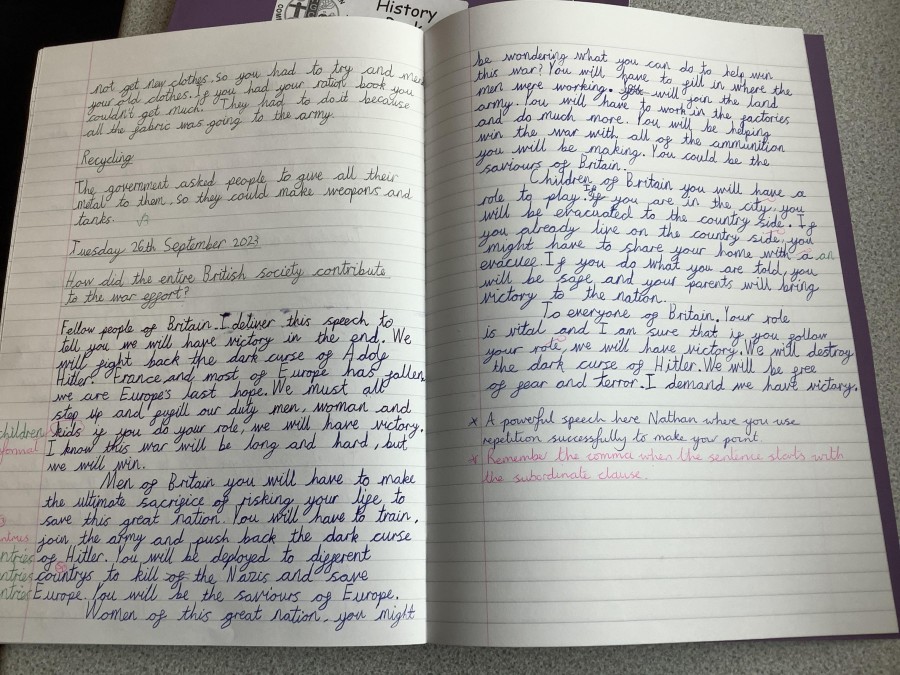 History
not get new clothes. So you had to try and
your old clothes. If you had your ration book you
couldn't get much. They had to do it because
all the fabric was going to the army.
Recycling
The government asked people to give all their
metal to them, so they could make weapons and
tanks.
Tuesday 26th September 2023
How did the entire British society contribute
to the war effort?
Fellow people of Britain. I deliver this speech to
tell you we will have victory in the end. We
will fight back the dark curse of Adolf
Hitler. France and most of Europe has fallen
we are Europe's last hope. We must all
step up and fulfill our duty men, woman and
children kids if you do your role, we will have victory.
formal I know this war will be long and hard, but
we will win.
Men of Britain you will have to make
the ultimate sacrifice of risking your life to
save this great nation. You will have to train,
join the army and push back the dark curse
of Hitler. You will be deployed to different
countrys to kill of the Nazis and save
Europe. You will be the saviours of Europe.
Women of this great nation, you might
be wondering what you can do to help win
this war? You will have to fill in where the
men were working. You will join the land
army. You will have to work in the factories
and do much more. You will be helping
win the war with all of the ammunition
you will be making. You could be the
saviours of Britain.
Children of Britain you will have a
role to play. If you are in the city, you
will be evacuated to the country side. If
you already live on the country side, you
might have to share your home with a an
evacuee. If you do what you are told, you
will be safe and your parents will bring
victory to the nation.
To everyone of Britain. Your role
is vital and I am sure that if you follow
your role, we will have victory. We will destroy
the dark curse of Hitler. We will be free
of fear and terror. I demand we have victary.
* A powerful speech here Nathan where you use
repetition successfully to make your point
* Remember the comma when the sentence starts with
the subordinate clause.